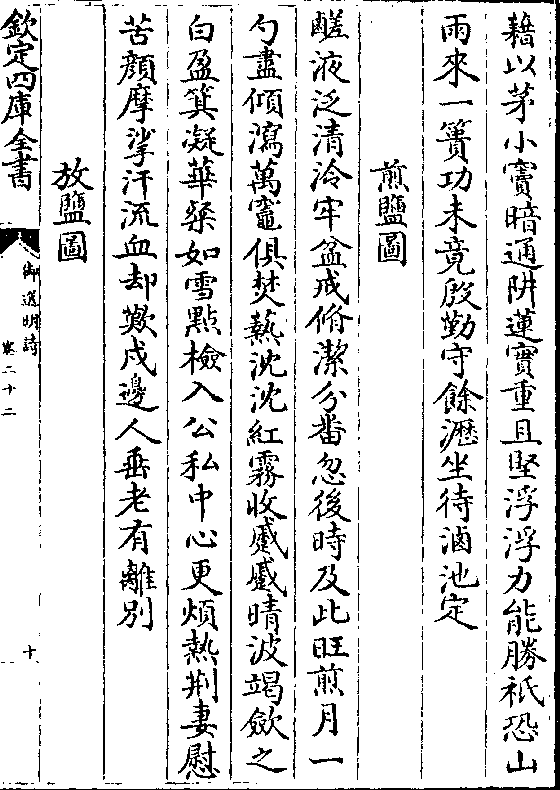 藉以茅小竇暗通阱蓮實重且堅浮浮力能勝祇恐山
雨來一簣功未竟殷勤守餘瀝坐待滷池定
煎鹽圖
醝液泛清泠牢盆戒脩潔分番忽後時及此旺煎月一
勺盡傾瀉萬竈俱焚熱沈沈紅霧收蹙蹙晴波竭斂之
白盈箕凝華粲如雪點檢入公私中心更煩熱荆妻慰
苦顔摩挲汗流血却歎戍邊人垂老有離別
放鹽圖
欽定四庫全書
御選明詩
卷二十二
十